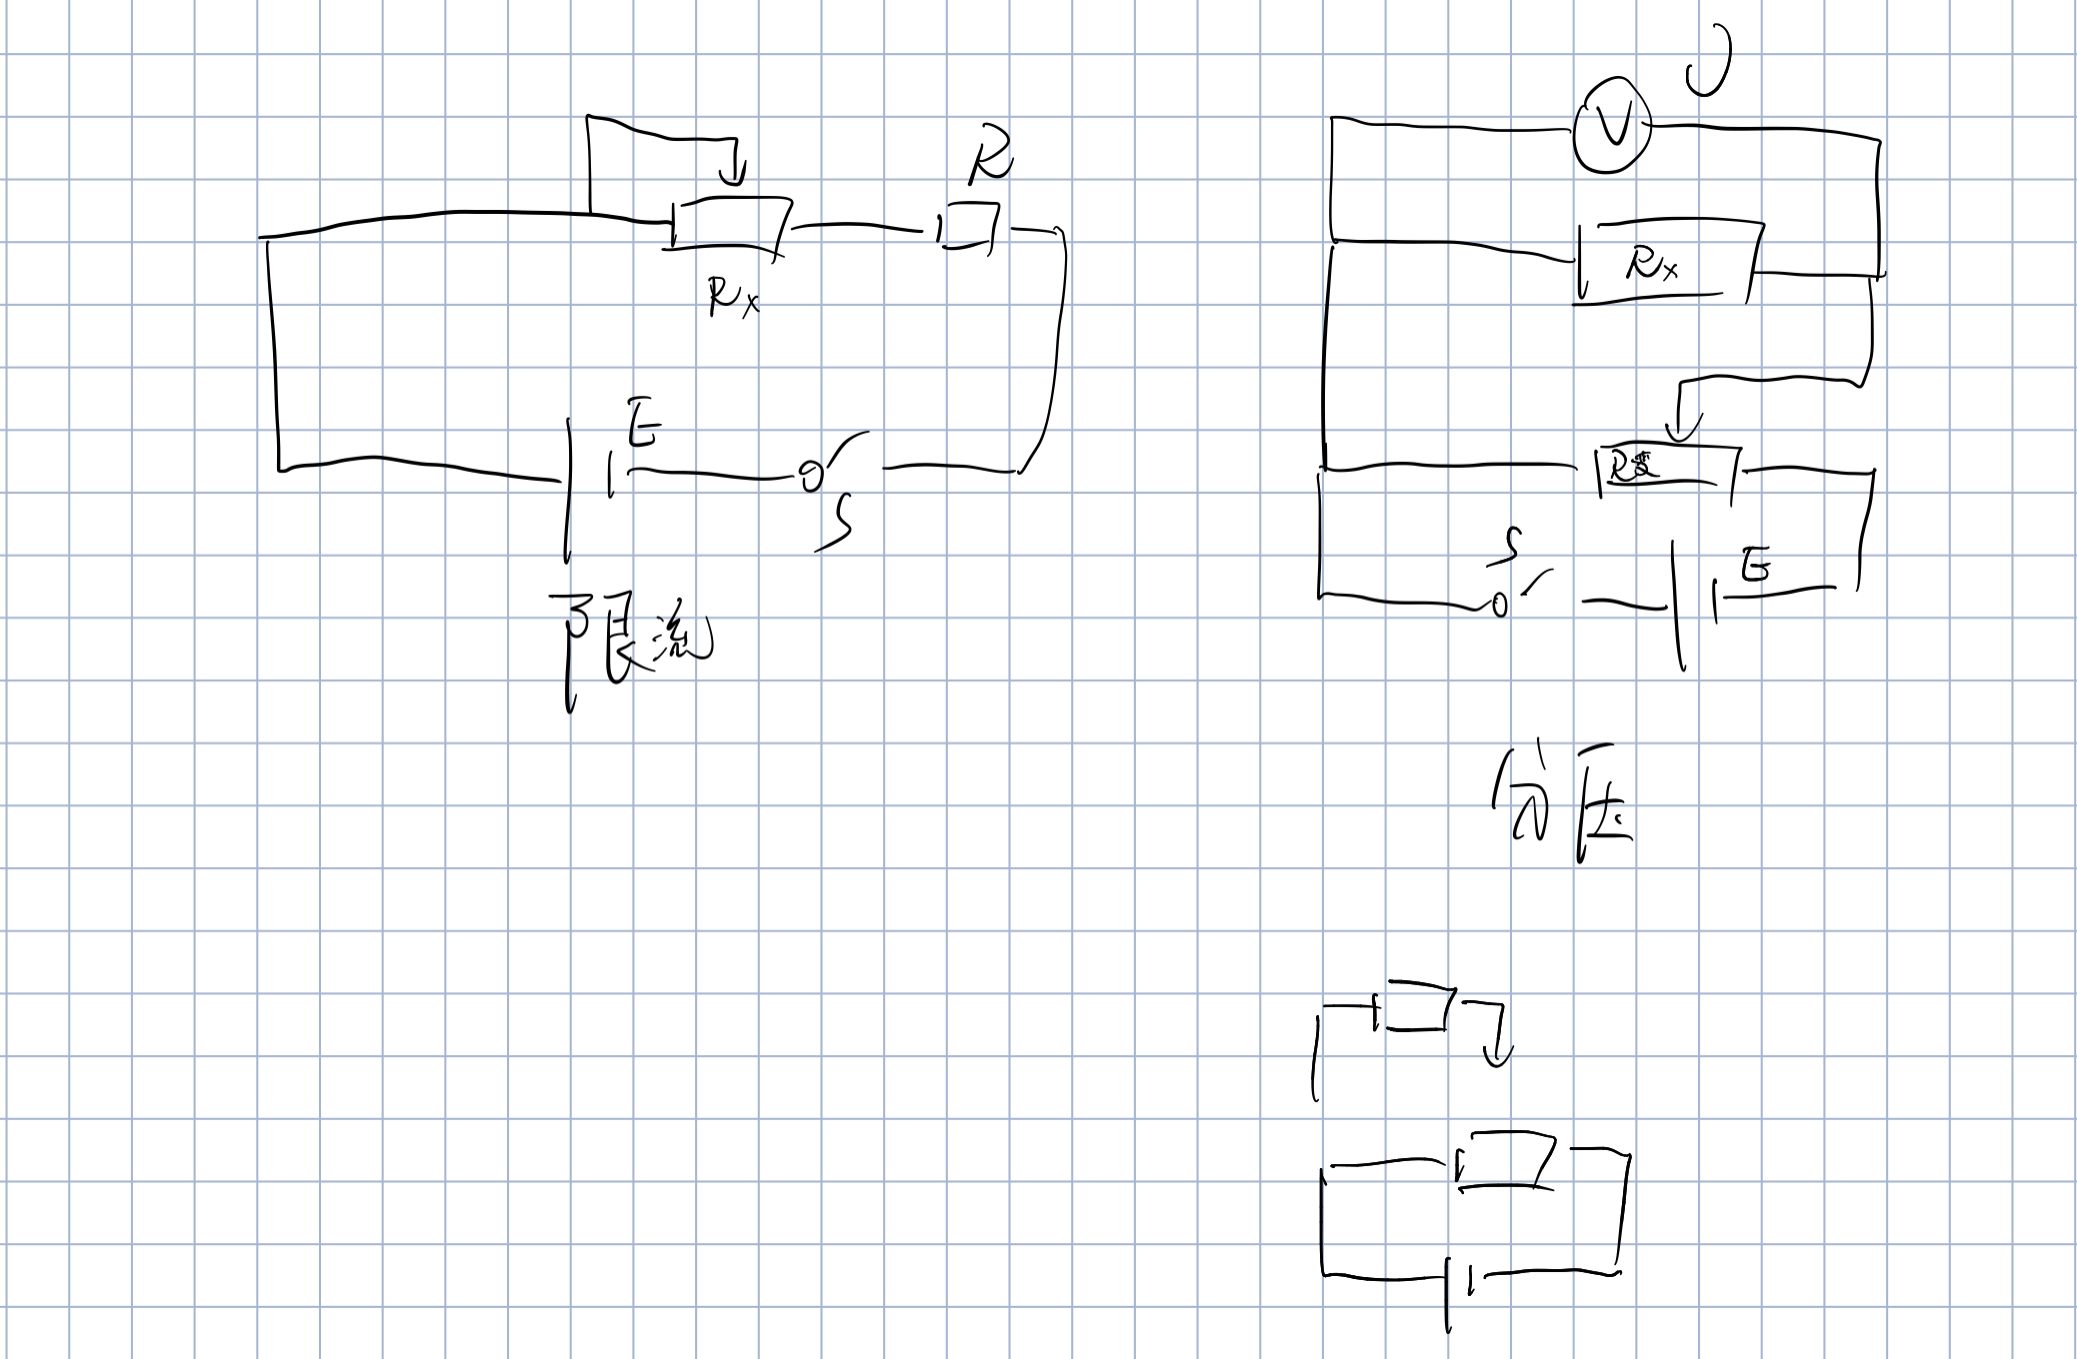 R
Rx
E
S
限流
U
V
Rx
R变
S
E
分压